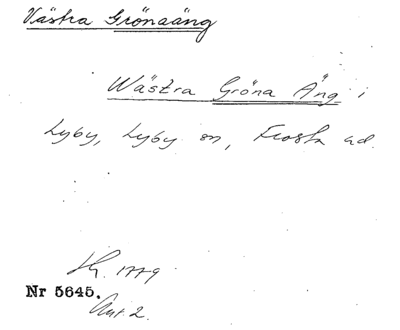 Västra Grönaäng
Wästra Gröna Äng i
Lyby, Lyby sn, Frosta hd.
1779.
Nr 5645.
Akt 2.